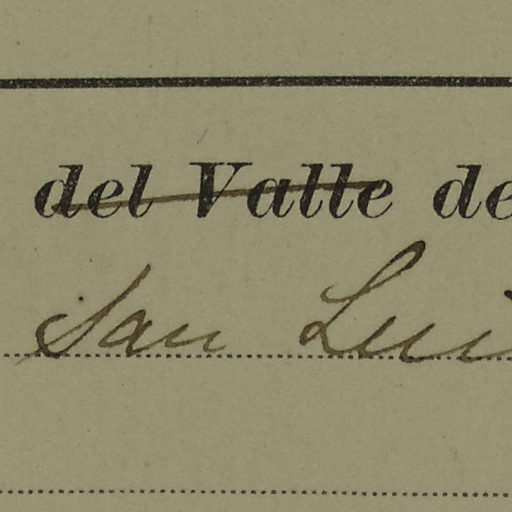 del Valle de
San Lui